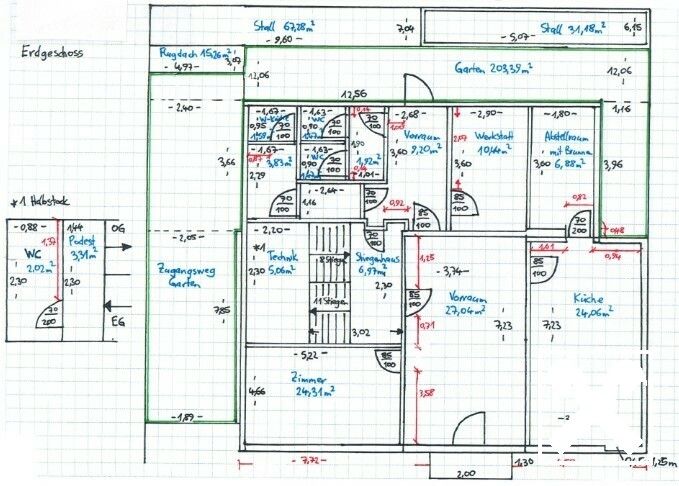 Erdgeschoss
Stall 67,28m²
-9,60-
7,04
Stall 31,18m²
-5,07-
6,15
-4,97-
3,07
Garten 203,39m²
12,06
12,06
12,56
1,16
-2,40-
-1,67-
-1,63-
0,14
-2,68-
-2,90-
-1,80-
0,95
70/100
0,90
WC
70/100
70/100
1,00
Vorraum
9,20m²
2,07
Werkstatt
10,44m²
Abstellraum
mit Brunnen
6,88m²
-1,67-
-1,63-
1,90
3,66
0,87
3,83m²
WC
70/100
1,92m²
3,60
3,60
3,60
3,96
2,29
0,90
1,01
-2,64-
*1 Halbstock
70/100
1,16
70/100
0,92
85/100
85/100
0,82
70/200
0,48
-0,88-
1,44
OG
WC
2,02m²
1,37
Podest
3,31m²
2,30
2,30
70/200
EG
-2,05-
Zugangsweg
Garten
7,85
-1,89-
-2,20-
*1
Technik
5,06m²
2,30
8 Stiegen
11 Stiegen
Stiegenhaus
6,97m²
2,30
70/100
-3,02
1,25
-3,74-
85/100
Vorraum
27,04m²
0,71
7,23
1,61
0,94
85/100
Küche
24,06m²
7,23
-5,22-
85/100
Zimmer
24,31m²
4,66
3,58
-7,72-
2,00
1,30
1,25m